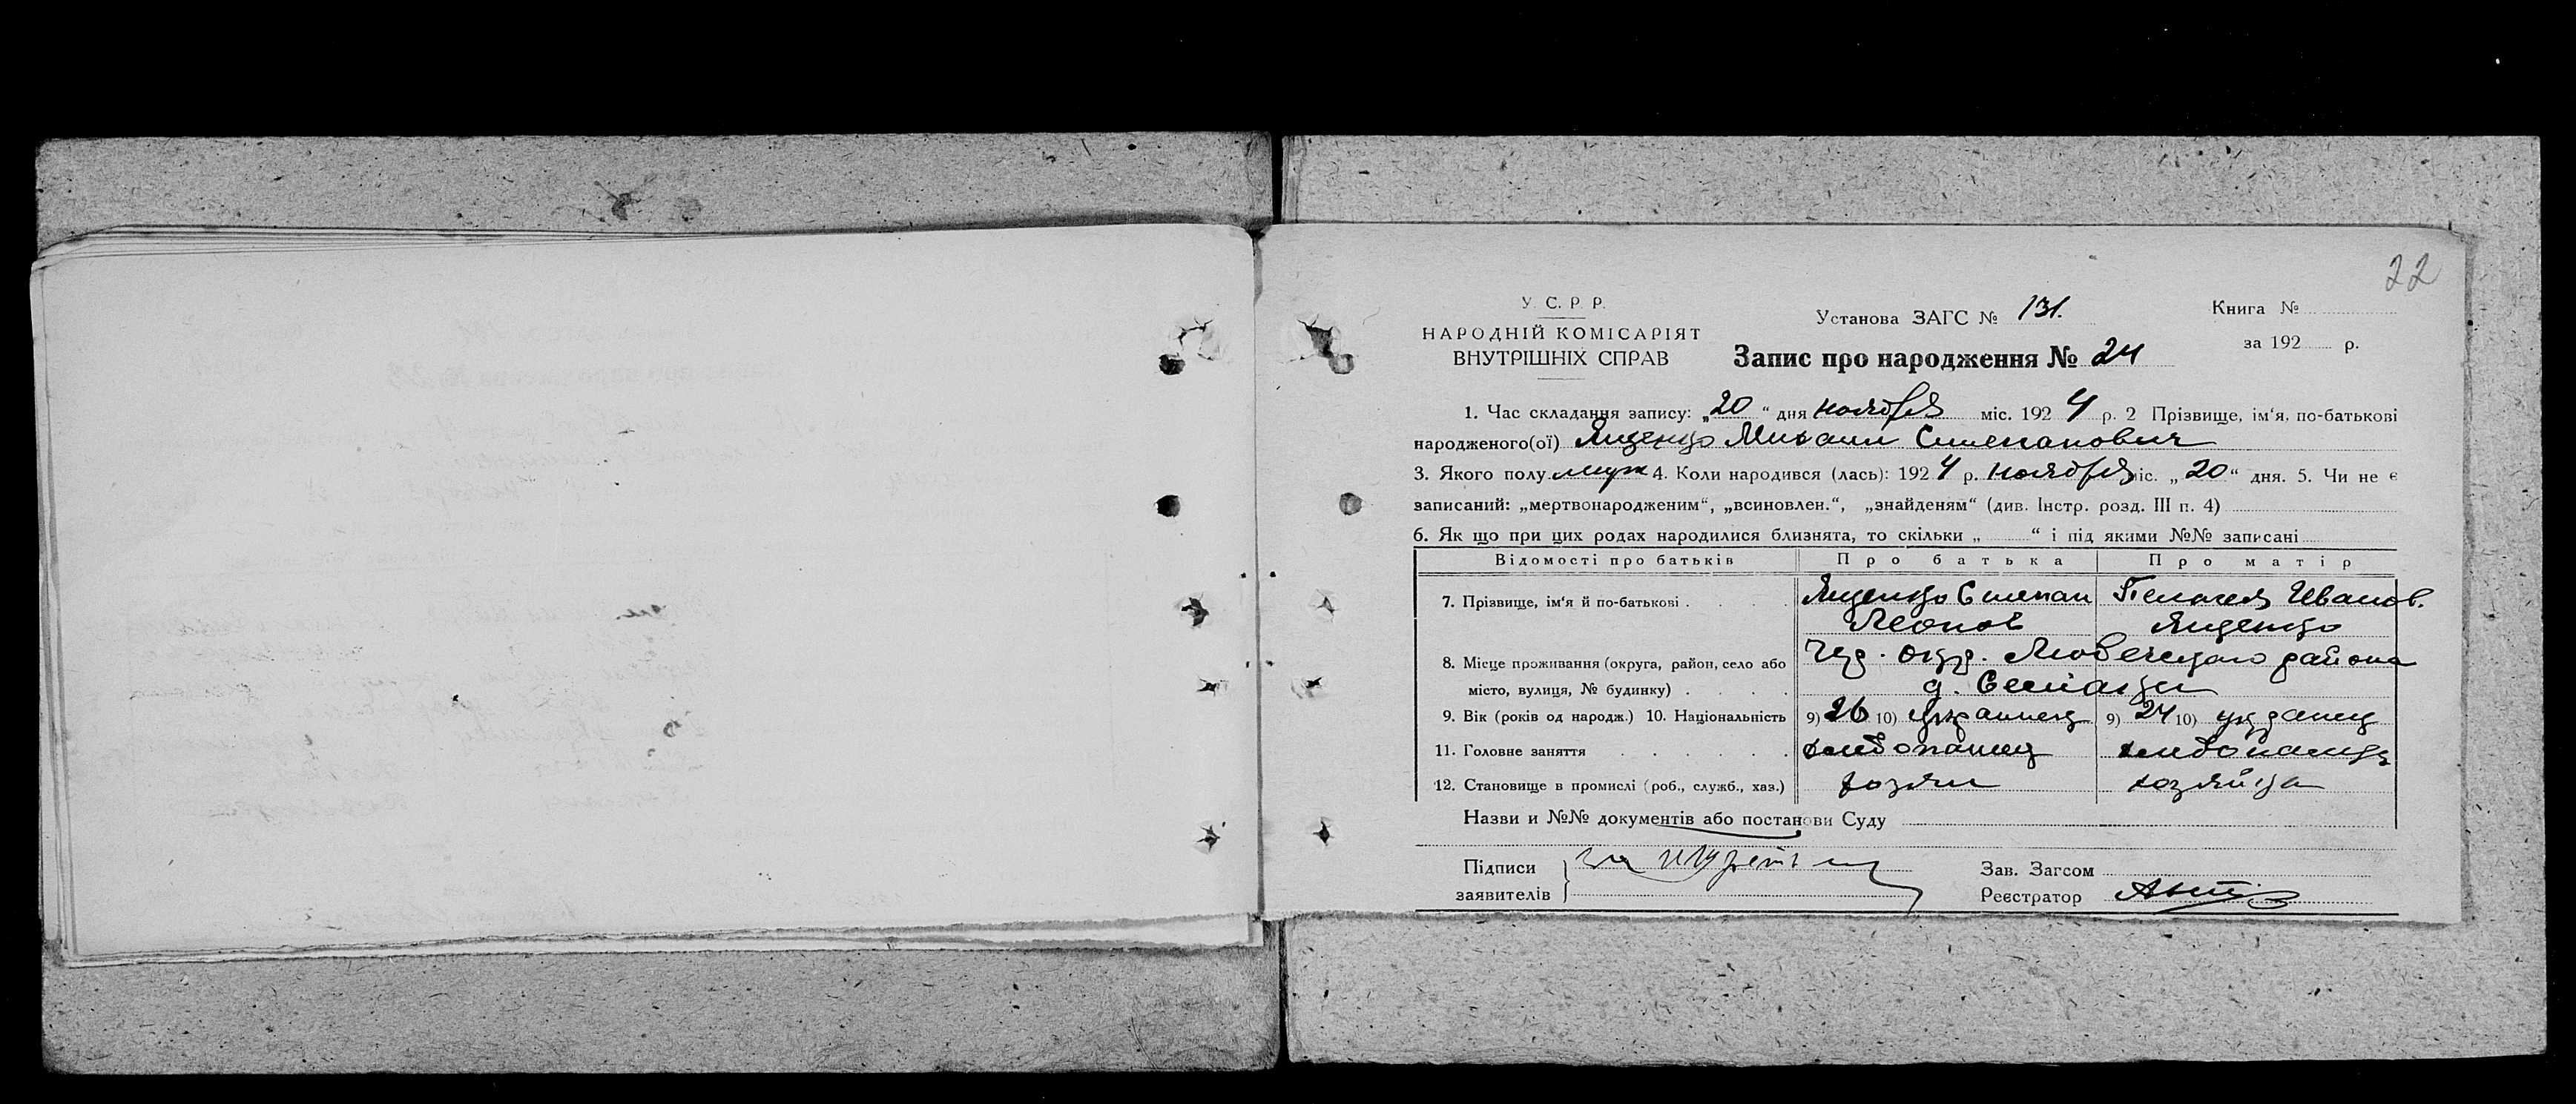 22
У. С. Р. Р.
НАРОДНІЙ КОМІСАРІЯТ
ВНУТРІШНІХ СПРАВ
Установа ЗАГС № 131.
Запис про народження № 24
Книга №
за 192 р.
1. Час складання запису: „20“ дня ноября міс. 1924 р. 2 Прізвище, ім‘я, по-батькові
народженого(ої) Яценко Михаил Степанович
3. Якого полу муж 4. Коли народився (лась): 1924 р. ноября міс. „20“ дня. 5. Чи не є
записаний: „мертвонародженим“, „всиновлен.“, „знайденям“ (див. Інстр. розд. III п. 4)
6. Як що при цих родах народилися близнята, то скільки „ “ і під якими №№ записані
Відомості про батьків Про батька Про матір
7. Прізвище, ім‘я й по-батькові . . . . Яценко Степан Пелагея Иванов.
Леонов Яценко
8. Місце проживання (округа, район, село або окр. Любечского района
місто, вулиця, № будинку) . . . . д.
9. Вік (років од народж.) 10. Національність 9) 26 10) украинец 9) 24 10)
11. Головне заняття . . . . . . хлебопашец
12. Становище в промислі (роб., служб., хаз.) хозяин хозяйка
Назви и №№ документів або постанови Суду
Підписи
заявителів
Зав. Загсом
Реєстратор